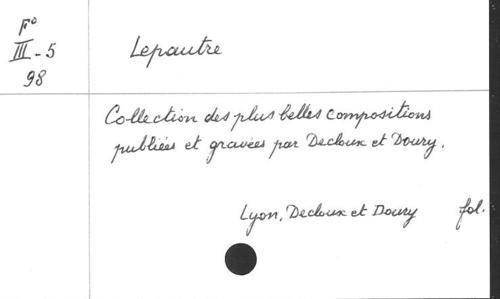 F°
III-5
98
Lepautre
Collection des plus belles compositions
publiées et gravées par Decloux et Doury.
Lyon, Decloux et Doury fol.